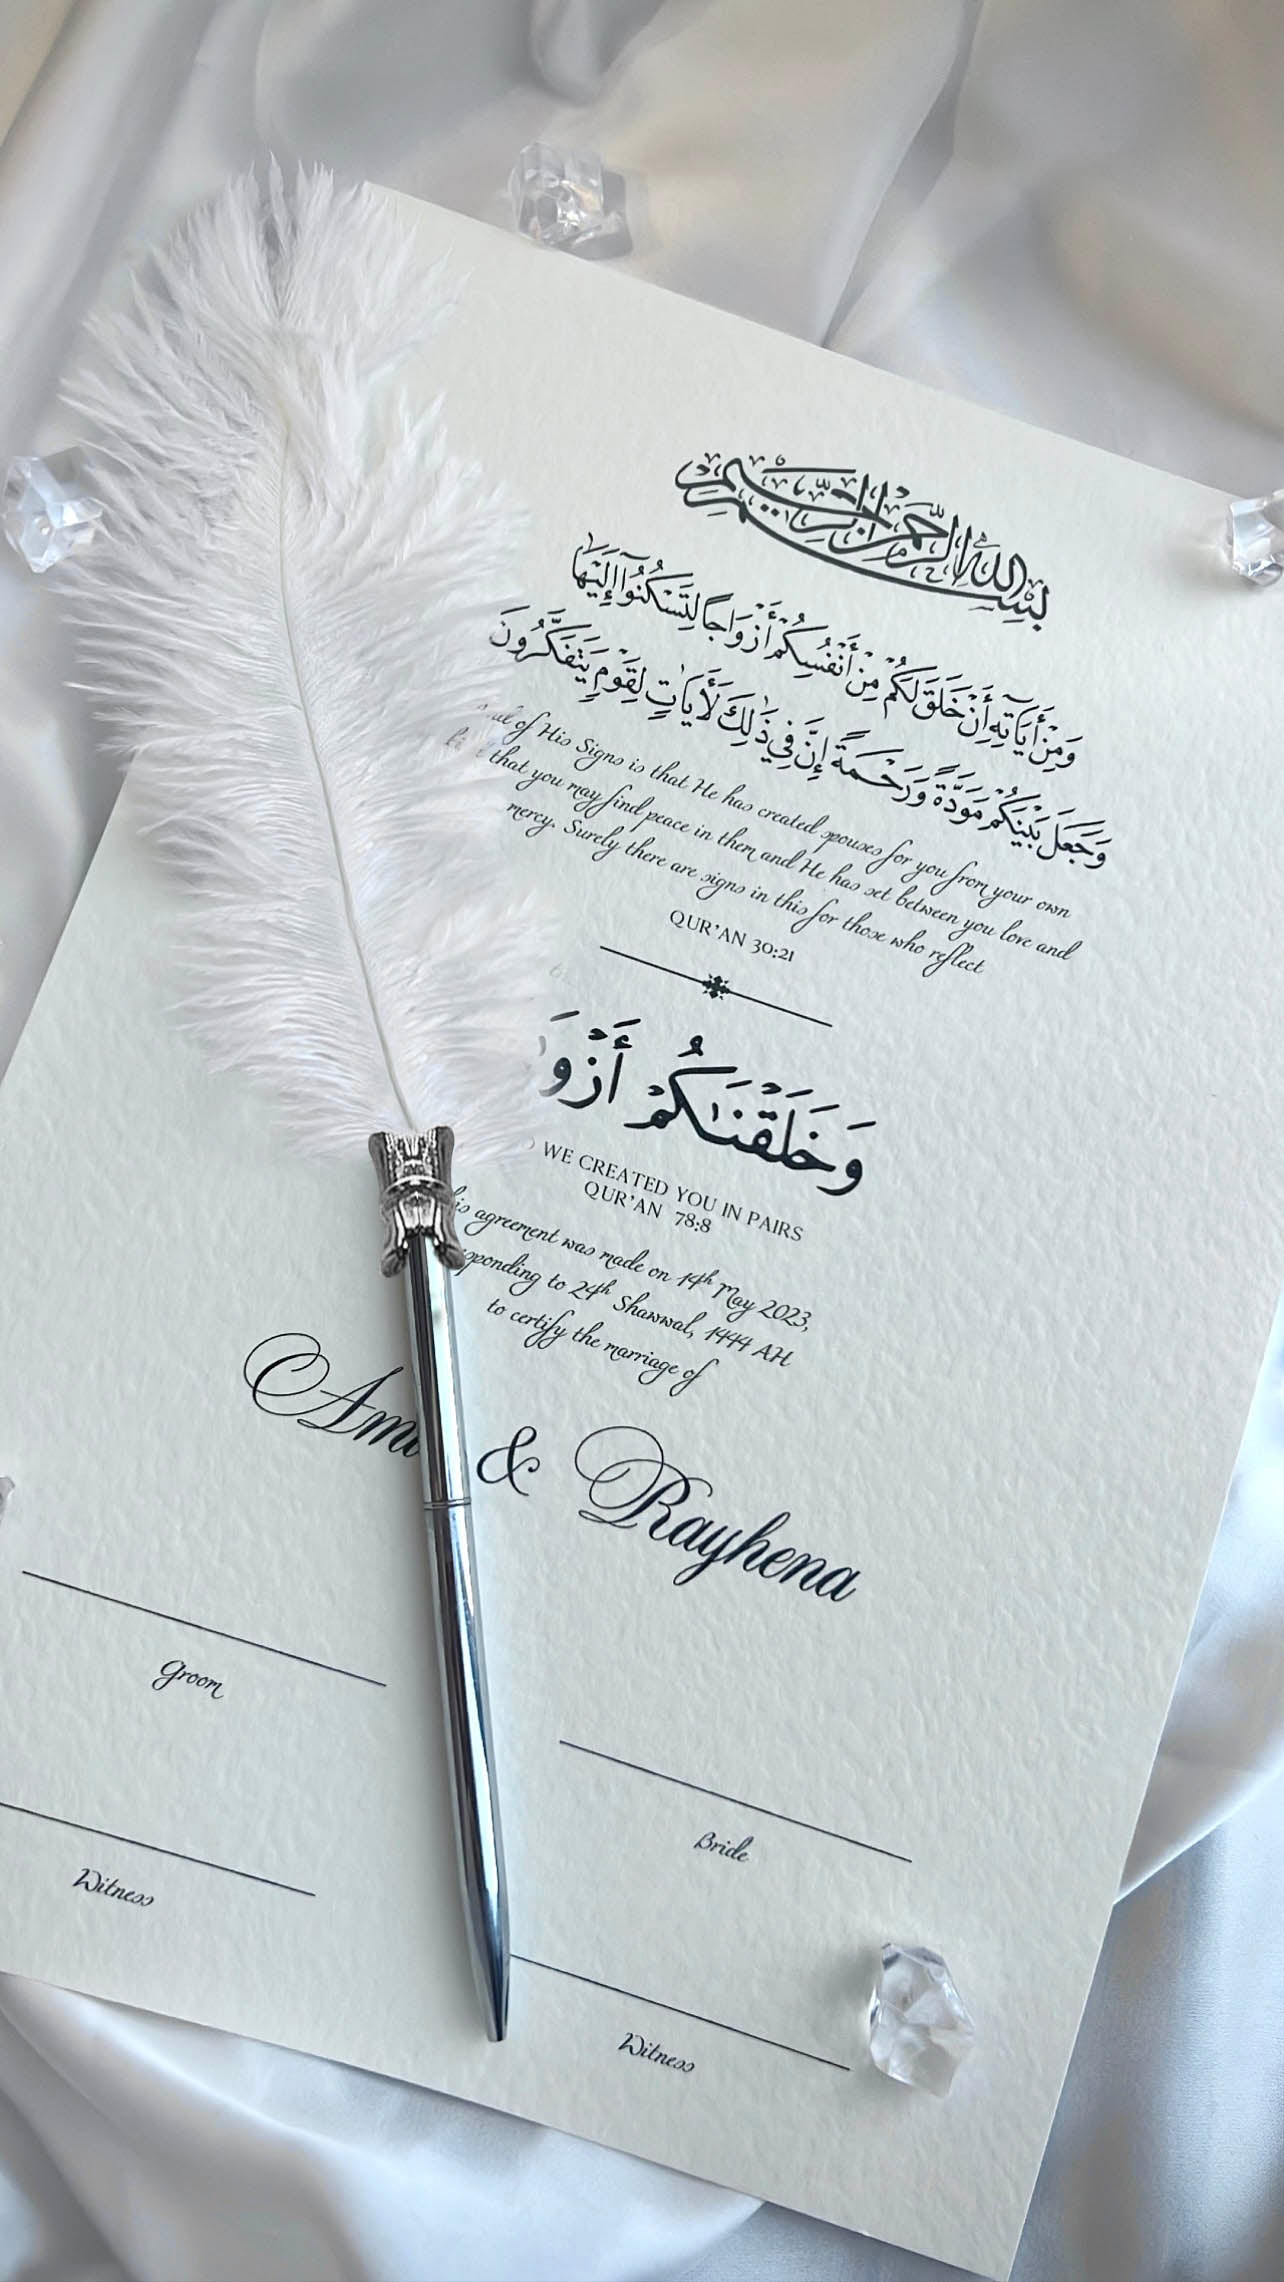 بسم الله الرحمن الرحيم
وَمِنْ أَيَاتِهِ أَنْ خَلَقَ لَكُمْ مِنْ أَنْفُسِكُمْ أَزْوَاجًا لِتَسْكُنُوا إِلَيْهَا
وَجَعَلَ بَيْنَكُمْ مَوَدَّةً وَرَحْمَةً إِنَّ فِي ذَٰلِكَ لَأَيَاتٍ لِقَوْمٍ يَتَفَكَّرُونَ
of His Signs is that He has created spouses for you from your own
that you may find peace in them and He has set between you love and
mercy. Surely there are signs in this for those who reflect
QUR'AN 30:21
وَخَلَقْنَٰكُمْ
WE CREATED YOU IN PAIRS
QUR'AN 78:8
agreement was made on 14th May 2023,
to 24th Shawwal, 1444 AH
to certify the marriage of
& Rayhena
Groom
Bride
Witness
Witness